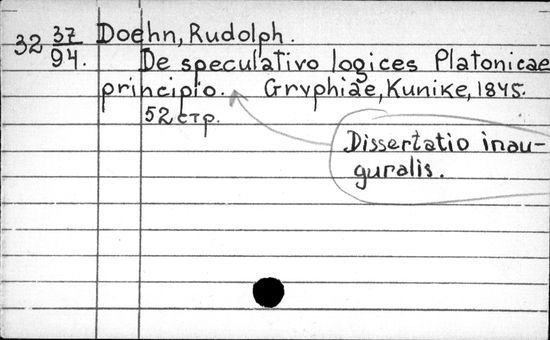 32 37/94. Doehn, Rudolph.
De speculativo logices Platonicae
principio. Gryphiae, Kunike, 1845.
52 стр.
Dissertatio inau-
guralis.